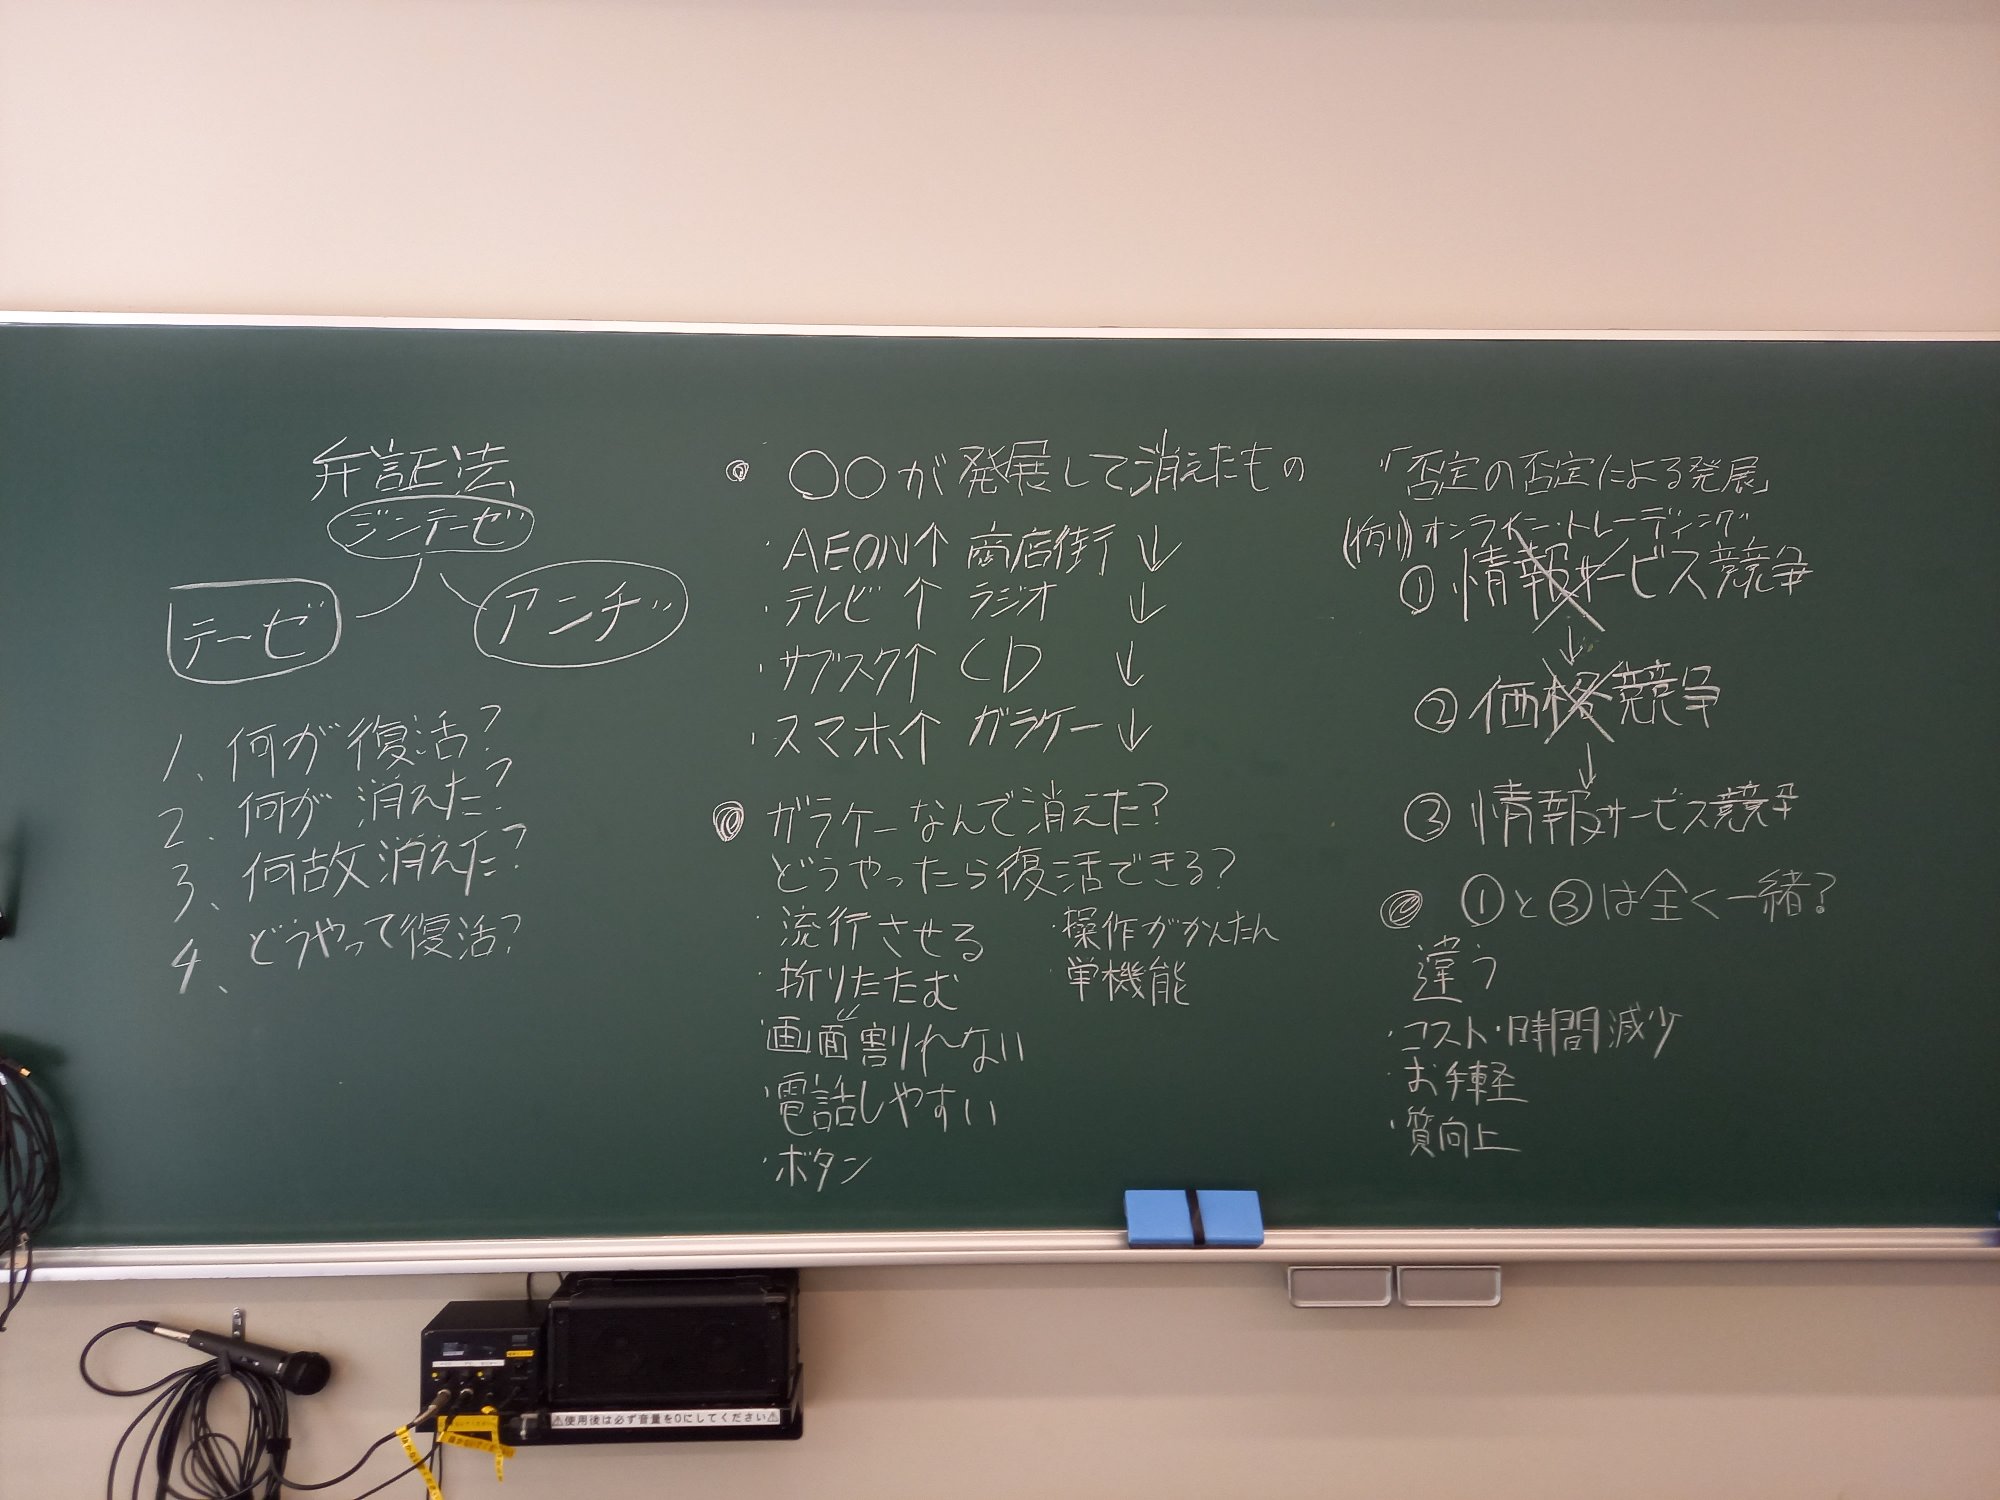 弁証法
ジンテーゼ
テーゼ
アンチ
1、何が復活?
2、何が消えた?
3、何故消えた?
4、どうやって復活?
◎ ○○が発展して消えたもの
・AEON↑ 商店街↓
・テレビ↑ ラジオ ↓
・サブスク↑ CD ↓
・スマホ↑ ガラケー↓
◎ ガラケーなんで消えた?
どうやったら復活できる?
・流行させる
・折りたたむ
・画面割れない
・電話しやすい
・ボタン
・操作がかんたん
・単機能
「否定の否定による発展」
(例)オンライン・トレーディング
①情報サービス競争
↓
②価格競争
↓
③情報サービス競争
◎ ①と③は全く一緒?
違う
・コスト・時間減少
・お手軽
・質向上
⚠使用後は必ず音量を0にしてください⚠